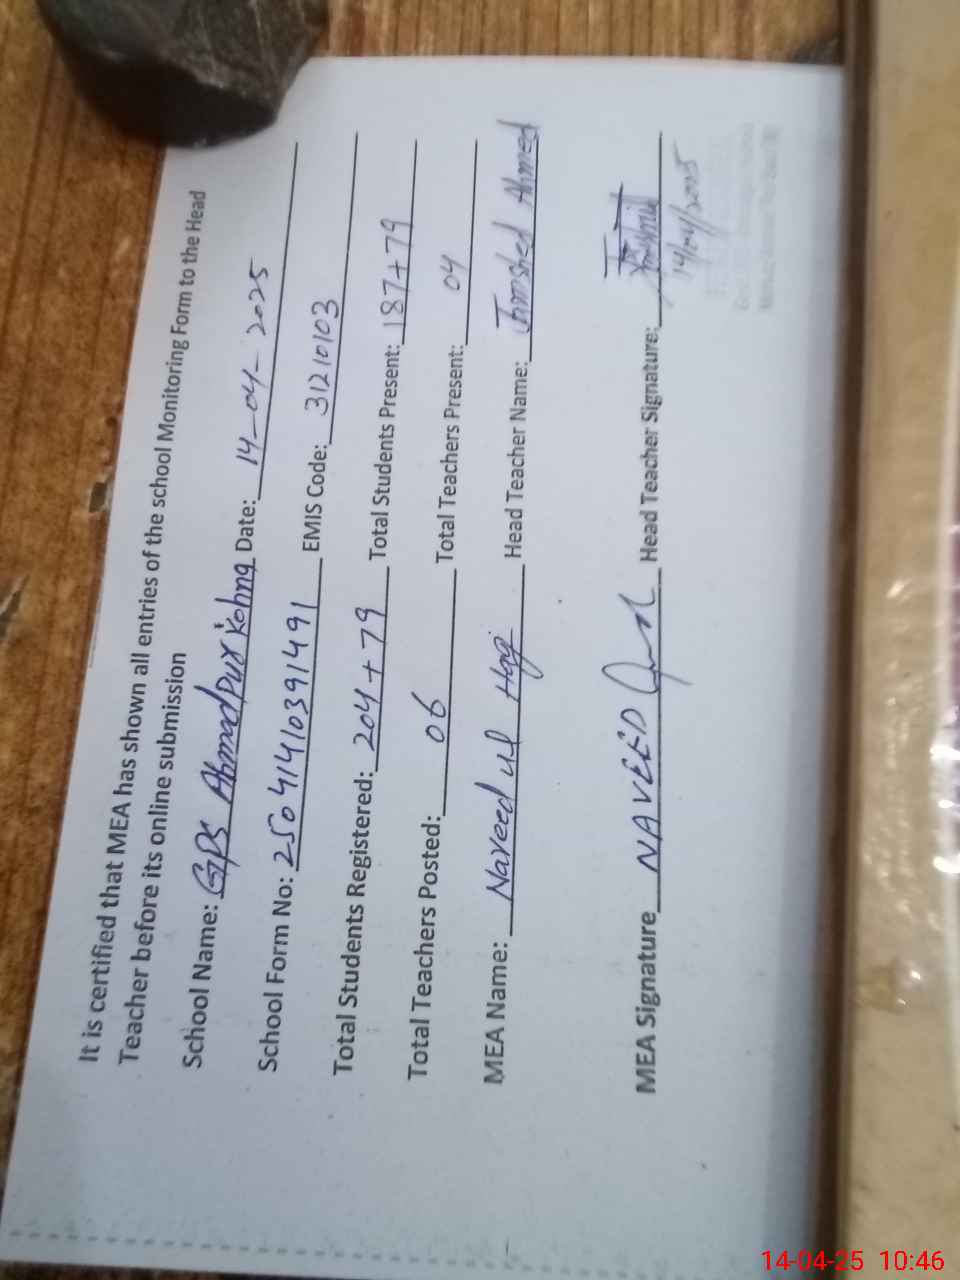 It is certified that MEA has shown all entries of the school Monitoring Form to the Head
Teacher before its online submission
School Name: GPS Ahmadpur Kohna Date: 14-04-2025
School Form No: 25041410391491 EMIS Code: 31210103
Total Students Registered: 204+79 Total Students Present: 187+79
Total Teachers Posted: 06 Total Teachers Present: 04
MEA Name: Naveed ul Haq Head Teacher Name: Jamshed Ahmed
MEA Signature NAVEED Head Teacher Signature:
14/04/2025
14-04-25 10:46